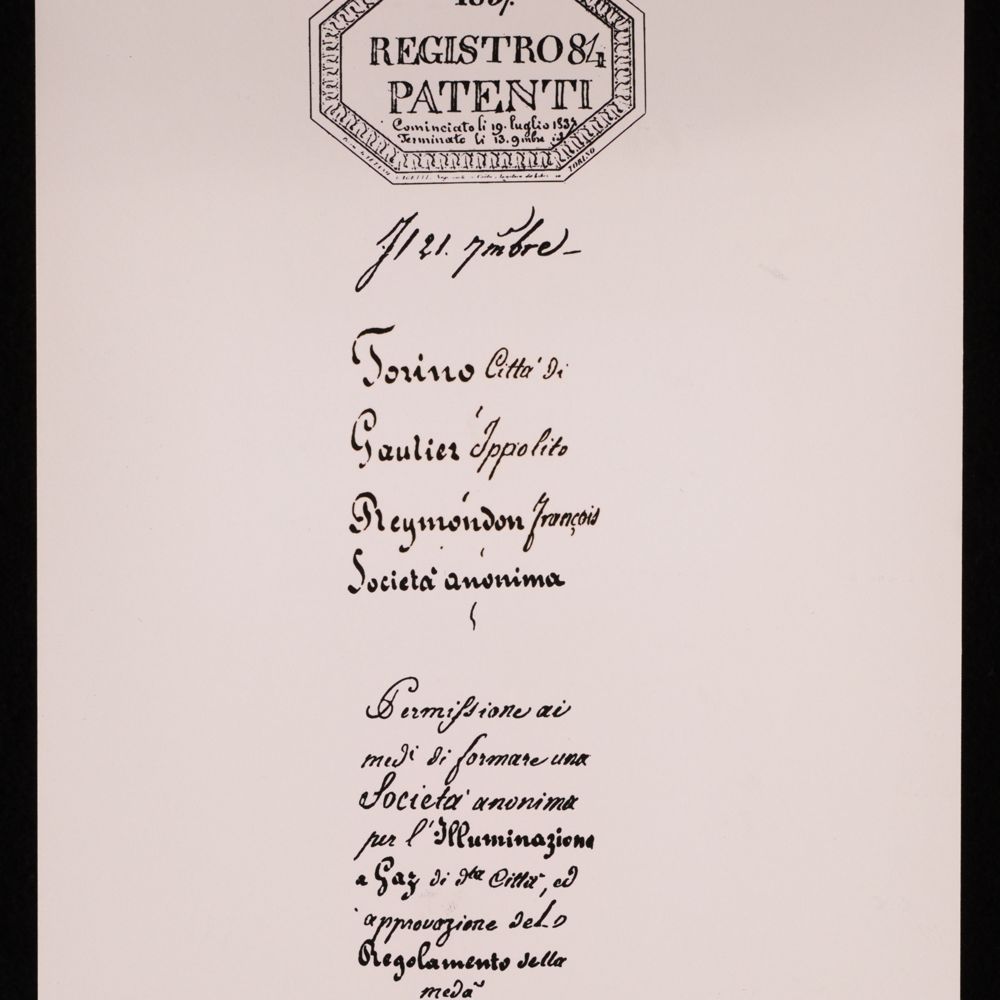 REGISTRO 84
PATENTI
Cominciato li 19. luglio 1837
Terminato li 13. 9mbre id.
TORINO
Il 21. 7mbre
Torino Città di
Gautier Ippolito
Reymondon François
Società anonima
Permissione ai
medi di formare una
Società anonima
per l'Illuminazione
a Gaz di dta Città, ed
approvazione del
Regolamento della
meda